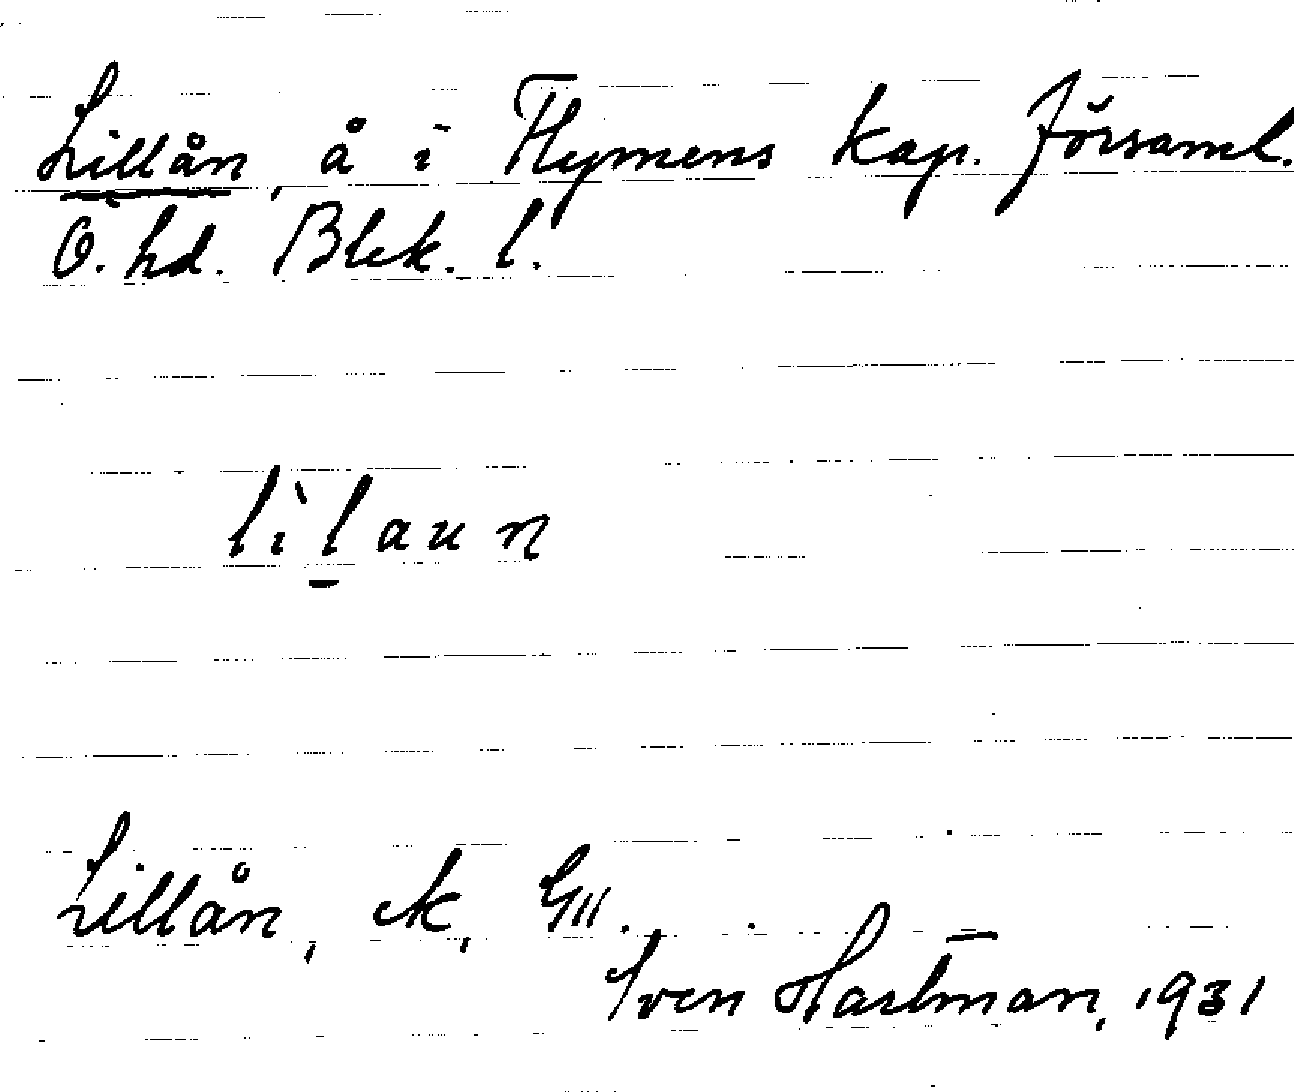 Lillån, å i Flymens kap. församl.
Ö. hd. Blek. l.
lìlaun
Lillån, ek, GII.
Sven Hartman, 1931